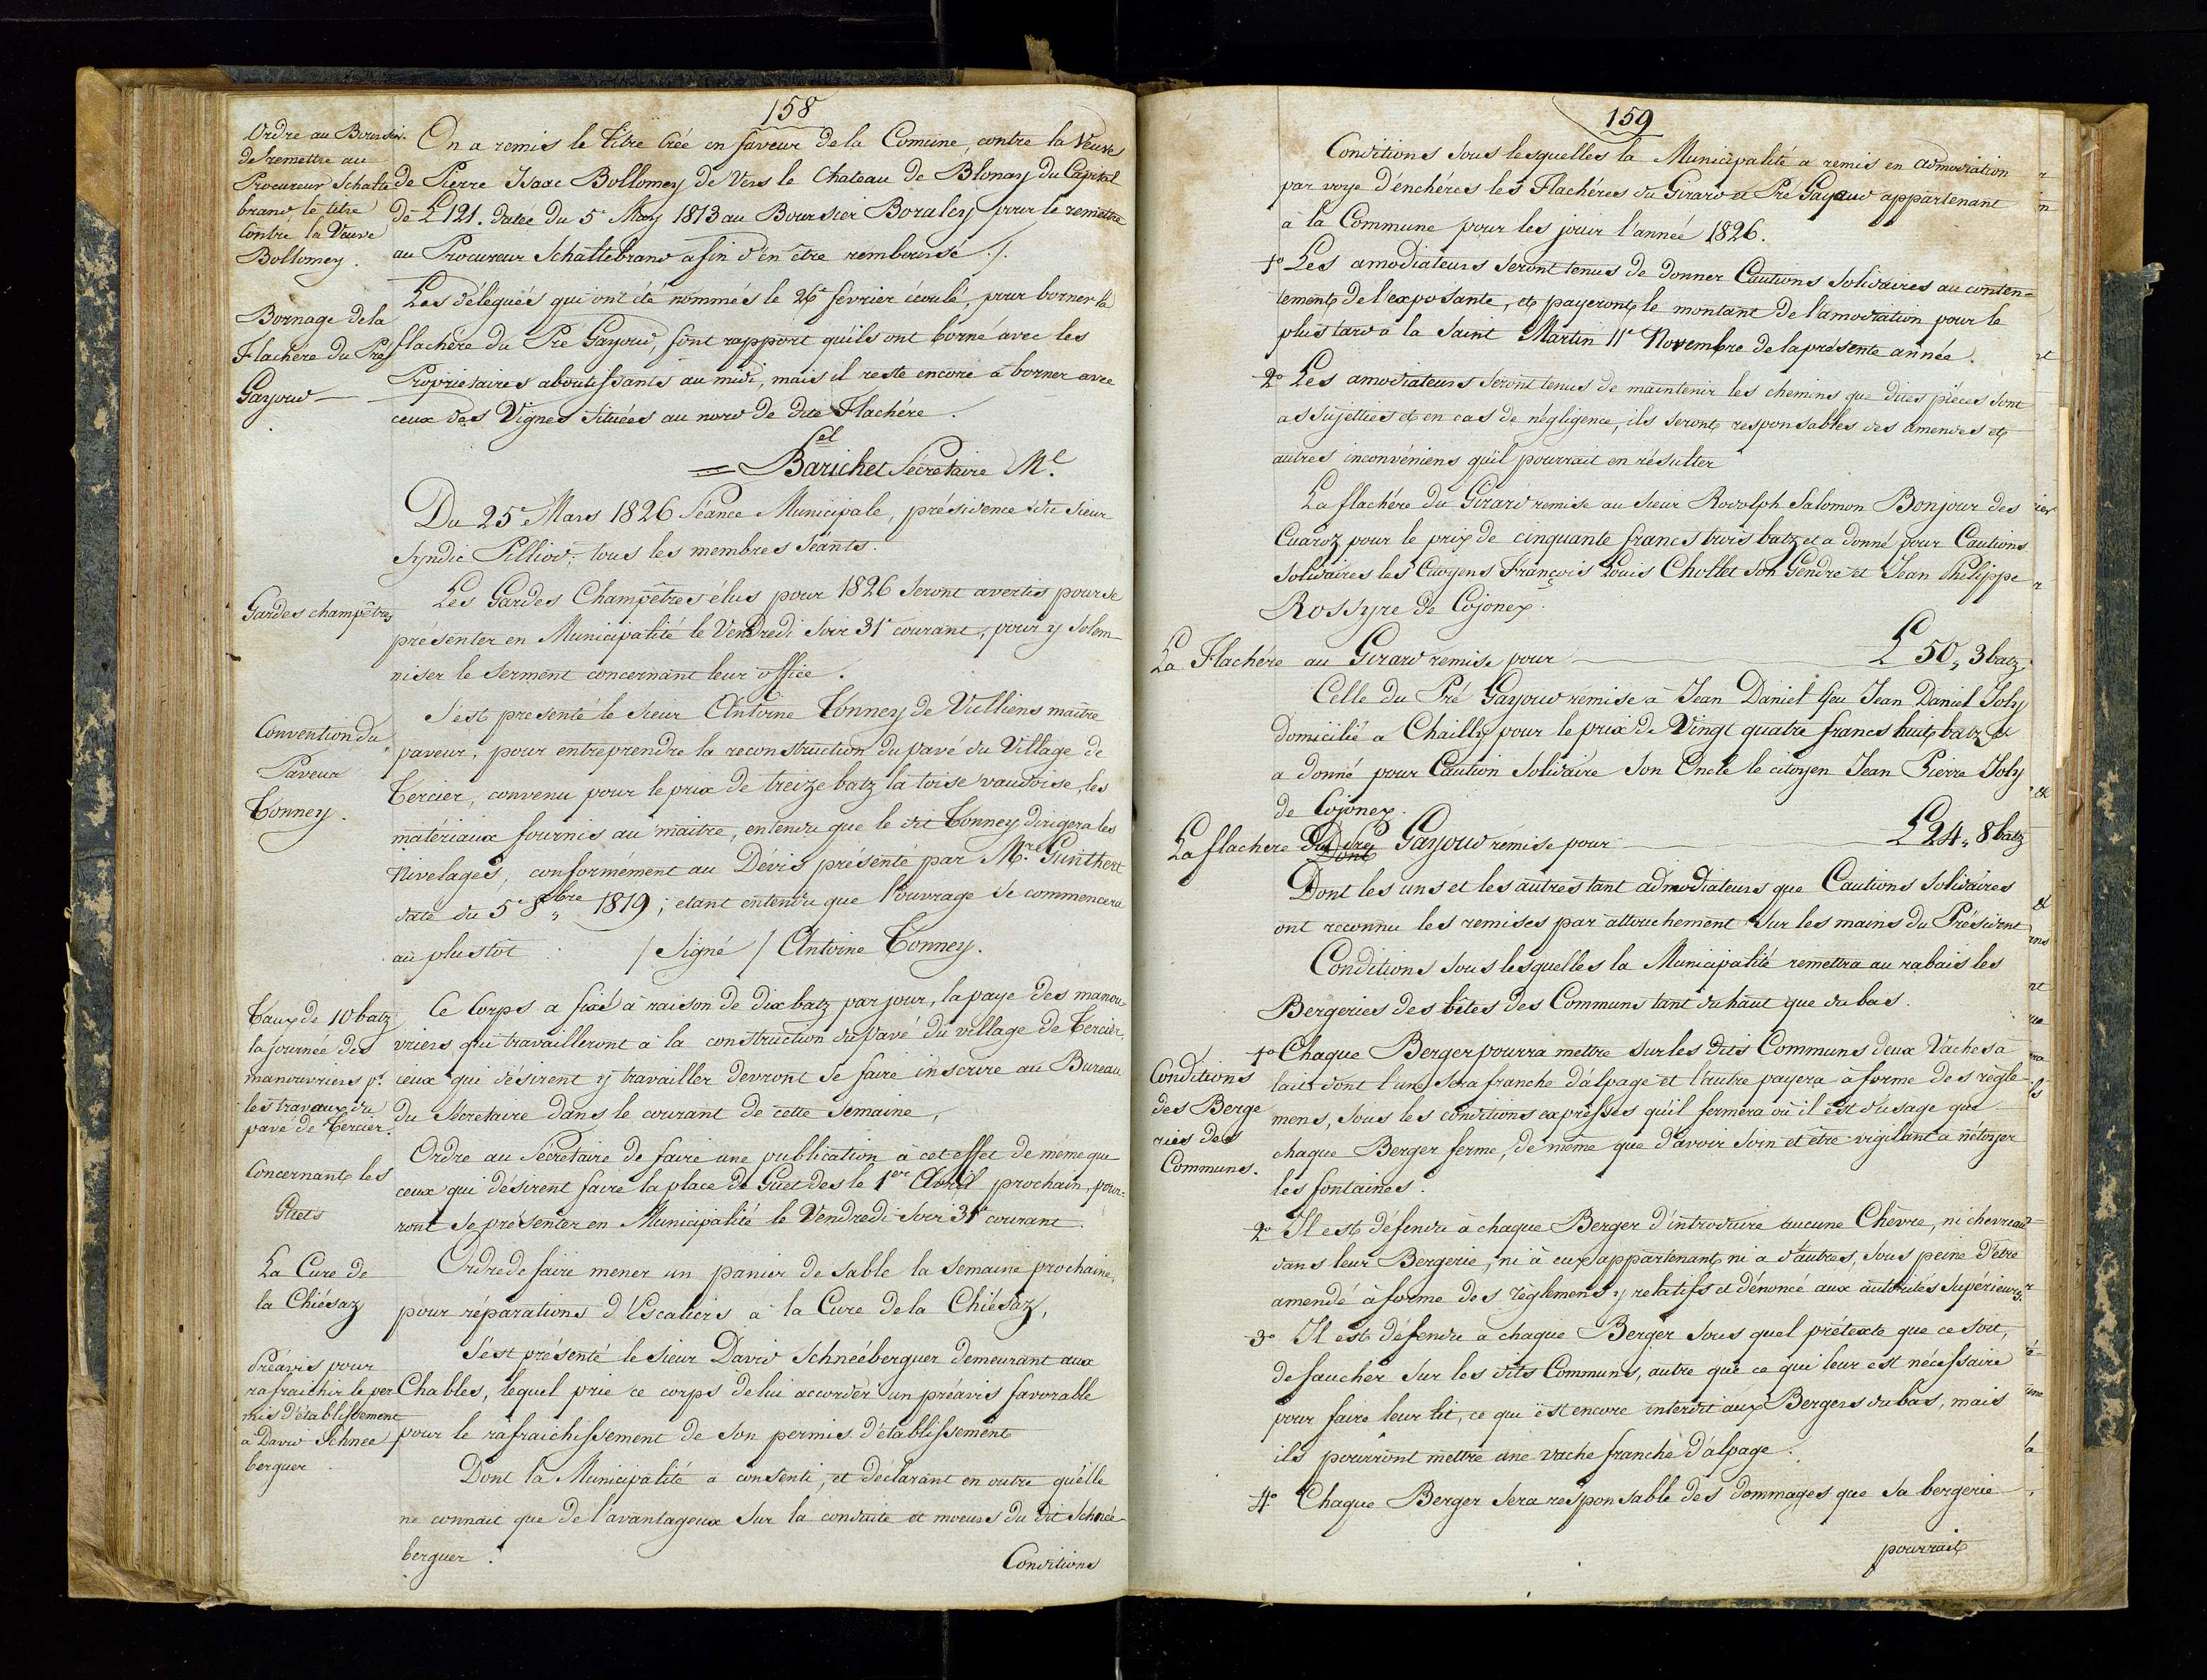 158
Ordre au Boursier
de remettre au
Procureur Schalte
brand, le titre
contre la Veuve
Bollomey.
On a remis le titre Créé en faveur de la Comune, contre la Veuve
de Pierre Isaac Bollomey de Vers le Chateau de Blonay du Capital
de £ 121. datée du 5e May 1813 au Boursier Boraley pour le remettre
au Procureur Schaltebrand afin d'en être remboursé ./.
Bornage de la
Flachère du Pré
Gayoud
Les délégués qui ont été nommés le 26e fevrier écoulé, pour borner la
flachère du Pré Gayoud, font rapport qu'ils ont borné avec les
Propriétaires aboutissants au midi, mais il reste encore à borner avec
ceux des Vignes situées au nord de dite Flachère.
el
= Barichet Sécretaire Ml.
Du 25e Mars 1826 Séance Municipale, présidence du Sieur
Syndic Pilliod; tous les membres séants.
Gardes champêtres
Les Gardes Champêtres élus pour 1826 seront avertis pour se
présenter en Municipalité le Vendredi soir 31e courant, pour y solem-
niser le serment concernant leur office.
Convention du
Paveur
Tonney.
S'est presenté le sieur Antoine Tonney de Vulliens maître
paveur, pour entreprendre la reconstruction du pavé du Village de
Tercier, convenu pour le prix de treize batz la toise vaudoise, les
matériaux fournis au maître, entendu que le dit Tonney dirigera les
Nivelages, conformément au Dévis présenté par Mre. Gunthert
daté du 5e 8bre 1819; etant entendu que l'ouvrage se commencera
au plustot : / Signé / Antoine Tonney.
Taux de 10 batz
la journée des
manouvriers pr.
les travaux du
pavé de Tercier.
Ce Corps a fixé à raison de dix batz par jour, la paye des manou-
vriers qui travailleront à la construction du pavé du village de Tercier,
ceux qui désirent y travailler devront se faire inscrire au Bureau
du Sécretaire dans le courant de cette semaine,
Concernant les
Guets
Ordre au Sécretaire de faire une publication à cet effet de même que
ceux qui désirent faire la place de Guet des le 1er Avril prochain, pour-
ront se présenter en Municipalité le Vendredi soir 31e courant.
La Cure de
la Chiésaz
Ordre de faire mener un panier de sable la semaine prochaine,
pour réparations d'Escaliers à la Cure de la Chiésaz,
Préavis pour
rafraichir le per
mis d'établissement
a David Schnee
berguer.
S'est présenté le sieur David Schneéberguer demeurant aux
Chables, lequel prie ce corps de lui accorder un préavis favorable
pour le rafraichissement de son permis d'établissement
Dont la Municipalité a consenti, et déclarant en outre qu'elle
ne connait que de l'avantageux sur la conduite et moeurs du dit Schneé-
berguer.
Conditions
159
Conditions sous lesquelles la Municipalité a remis en admodiation
par voye d'énchéres les Flachéres du Girard et Pré Gayoud appartenant
à la Commune pour les jouir l'année 1826.
1o Les amodiateurs seront tenus de donner Cautions Solidaires au conten-
tement de l'exposante, et payeront le montant de l'amodiation pour le
plus tard à la Saint Martin 11e Novembre de la présente année.
2o Les amodiateurs seront tenus de maintenir les chemins que dites pièces sont
assujetties et en cas de négligence, ils seront responsables des amendes et
autres inconvéniens qu'il pourrait en résulter
La flachére du Girard remise au Sieur Rodolph Salomon Bonjour des
Cuaroz pour le prix de cinquante francs trois batz et a donné pour Cautions
Solidaires les Citoyens François Louis Chollet son Gendre et Jean Philippe
Rossyre de Cojonex.
La Flachére au Girard remise pour £ 50 „ 3 batz.
Celle du Pré Gayoud remise a Jean Daniel feu Jean Daniel Joly
domicilié a Chailly pour le prix de Vingt quatre francs huit batz et
a donné pour Caution Solidaire son Oncle le citoyen Jean Pierre Joly
de Cojonex.
La flachere Du Pré Gayoud remise pour £ 24 „ 8 batz
Dont
Dont les uns et les autres tant admodiateurs que Cautions Solidaires
ont reconnu les remises par attouchement sur les mains du Président
Conditions sous lesquelles la Municipalité remettra au rabais les
Bergeries des bêtes des Communs tant du haut que du bas.
Conditions
des Berge
ries des
Communs.
1o Chaque Berger pourra mettre sur les dits Communs deux Vaches à
lait dont l'une sera franche d'alpage et l'autre payera à forme des règle-
mens, sous les conditions expresses qu'il fermera où il est d'usage que
chaque Berger ferme, de même que d'avoir soin et être vigilant a nétoyer
les fontaines.
2o Il est défendu à chaque Berger d'introduire aucune Chèvre, ni chevreau
dans leur Bergerie, ni à eux appartenant ni a d'autres, sous peine d'être
amendé à forme des règlemens y relatifs et dénoncé aux autorités Supérieures.
3o Il est défendu a chaque Berger sous quel prétexte que ce soit,
de faucher sur les dits Communs, autre que ce qui leur est nécessaire
pour faire leur lit, ce qui est encore interdit aux Bergers du bas, mais
ils pourront mettre une vache franche d'alpage.
4o Chaque Berger sera responsable des dommages que sa bergerie
pourrait